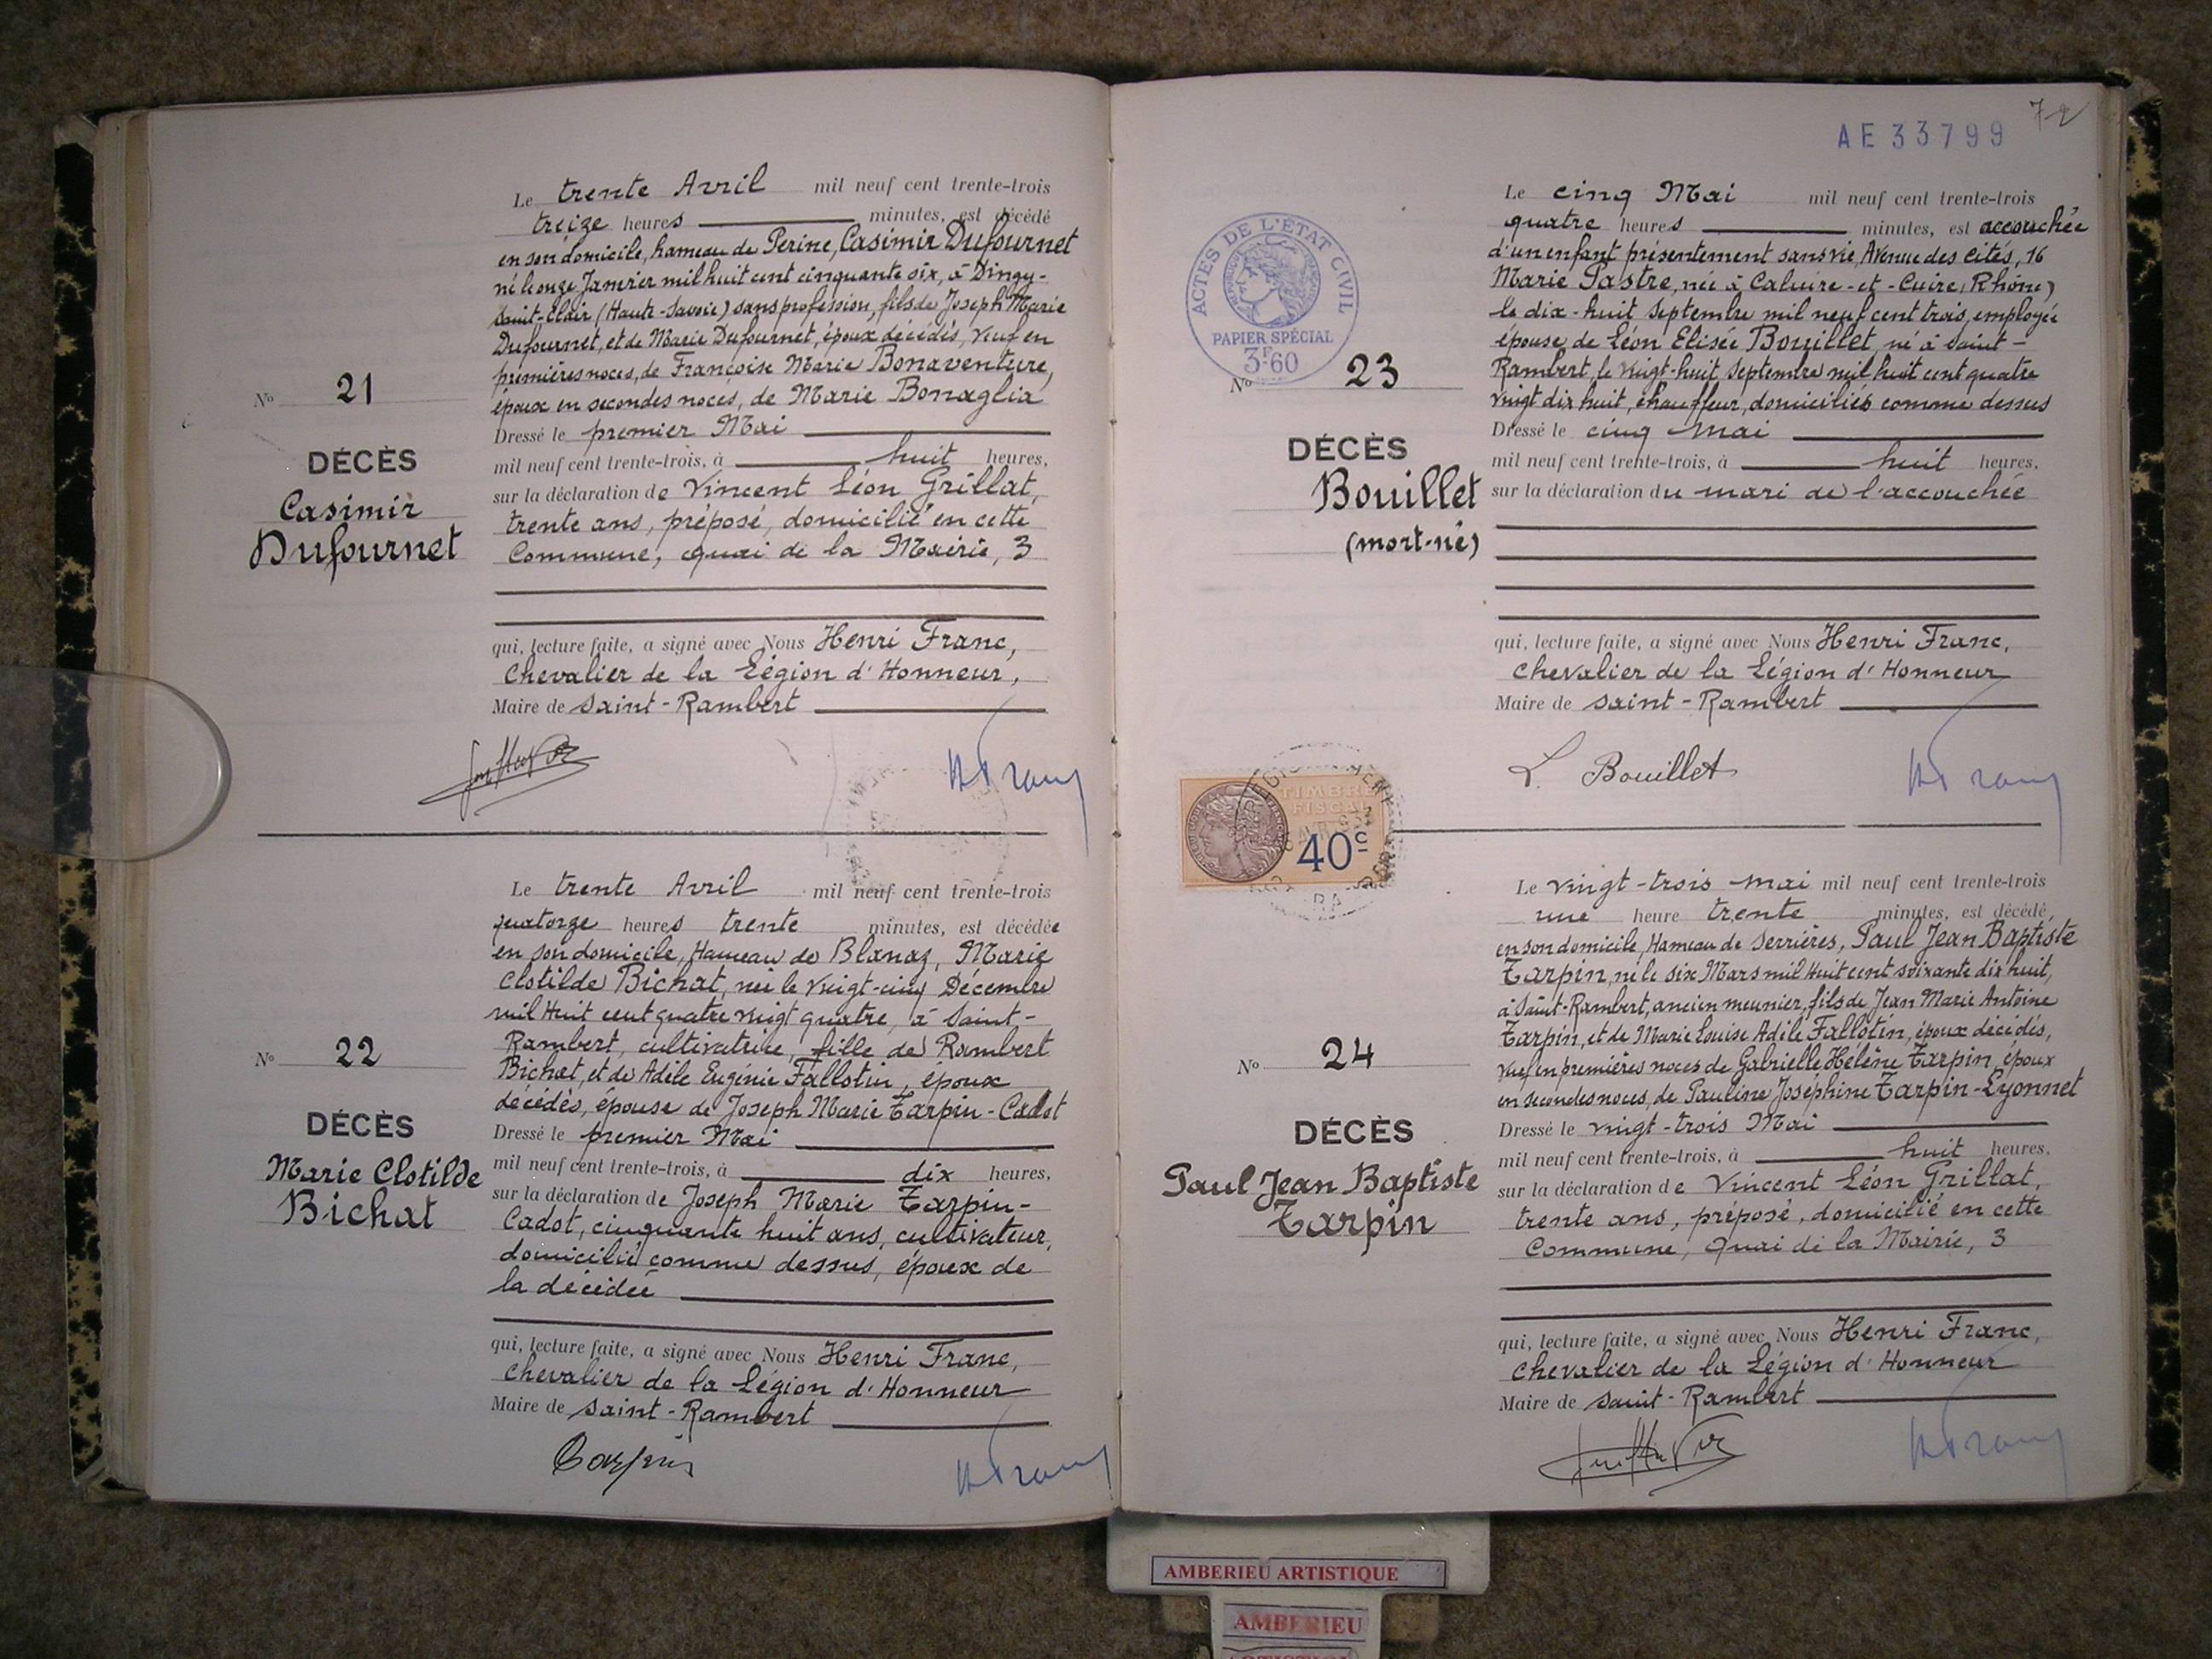 Le trente Avril mil neuf cent trente-trois
treize heures minutes, est décédé
en son domicile, hameau de Perine, Casimir Dufournet
né le onze Janvier mil huit cent cinquante six, à Dingy-
Saint-Clair (Haute-Savoie) sans profession, fils de Joseph Marie
Dufournet, et de Marie Dufournet, époux décédés, veuf en
premières noces, de Françoise Marie Bonaventure,
époux en secondes noces, de Marie Bonaglia
Dressé le premier Mai
mil neuf cent trente-trois, à huit heures,
sur la déclaration de Vincent Léon Grillat,
trente ans, préposé, domicilié en cette
Commune, quai de la Mairie, 3
qui, lecture faite, a signé avec Nous Henri Franc,
Chevalier de la Légion d'Honneur,
Maire de Saint-Rambert
No 21
DÉCÈS
Casimir
Dufournet
Le trente Avril mil neuf cent trente-trois
quatorze heures trente minutes, est décédée
en son domicile, Hameau de Blanaz, Marie
Clotilde Bichat, née le vingt-cinq Décembre
mil Huit cent quatre vingt quatre, à Saint-
Rambert, cultivatrice, fille de Rambert
Bichat, et de Adèle Eugénie Fallotin, époux
décédés, épouse de Joseph Marie Tarpin-Cadot
Dressé le premier Mai
mil neuf cent trente-trois, à dix heures,
sur la déclaration de Joseph Marie Tarpin-
Cadot, cinquante huit ans, cultivateur,
domicilié comme dessus, époux de
la décédée
qui, lecture faite, a signé avec Nous Henri Franc,
Chevalier de la Légion d'Honneur
Maire de Saint-Rambert
Tarpin
No 22
DÉCÈS
Marie Clotilde
Bichat
72
AE 33799
ACTES DE L'ÉTAT CIVIL
PAPIER SPÉCIAL
3F60
Le cinq Mai mil neuf cent trente-trois
quatre heures minutes, est accouchée
d'un enfant présentement sans vie, Avenue des Cités, 16
Marie Pastre, née à Caluire-et-Cuire (Rhône)
le dix-huit Septembre mil neuf cent trois, employée
épouse de Léon Elisée Bouillet, né à Saint-
Rambert, le vingt-huit Septembre mil huit cent quatre
vingt dix huit, chauffeur, domiciliés comme dessus
Dressé le cinq Mai
mil neuf cent trente-trois, à huit heures,
sur la déclaration du mari de l'accouchée
qui, lecture faite, a signé avec Nous Henri Franc,
Chevalier de la Légion d'Honneur
Maire de Saint-Rambert
L. Bouillet
H Franc
No 23
DÉCÈS
Bouillet
(mort-né)
TIMBRE
FISCAL
40c
Le vingt-trois mai mil neuf cent trente-trois
une heure trente minutes, est décédé,
en son domicile, Hameau de Serrières, Paul Jean Baptiste
Tarpin, né le six Mars mil Huit cent soixante dix huit,
à Saint-Rambert, ancien meunier, fils de Jean Marie Antoine
Tarpin, et de Marie Louise Adèle Fallotin, époux décédés,
veuf en premières noces de Gabrielle Hélène Tarpin, époux
en secondes noces, de Pauline Joséphine Tarpin-Lyonnet
Dressé le vingt-trois Mai
mil neuf cent trente-trois, à huit heures,
sur la déclaration de Vincent Léon Grillat,
trente ans, préposé, domicilié en cette
Commune, Quai de la Mairie, 3
qui, lecture faite, a signé avec Nous Henri Franc,
Chevalier de la Légion d'Honneur
Maire de Saint-Rambert
H Franc
No 24
DÉCÈS
Paul Jean Baptiste
Tarpin
AMBERIEU ARTISTIQUE
AMBERIEU